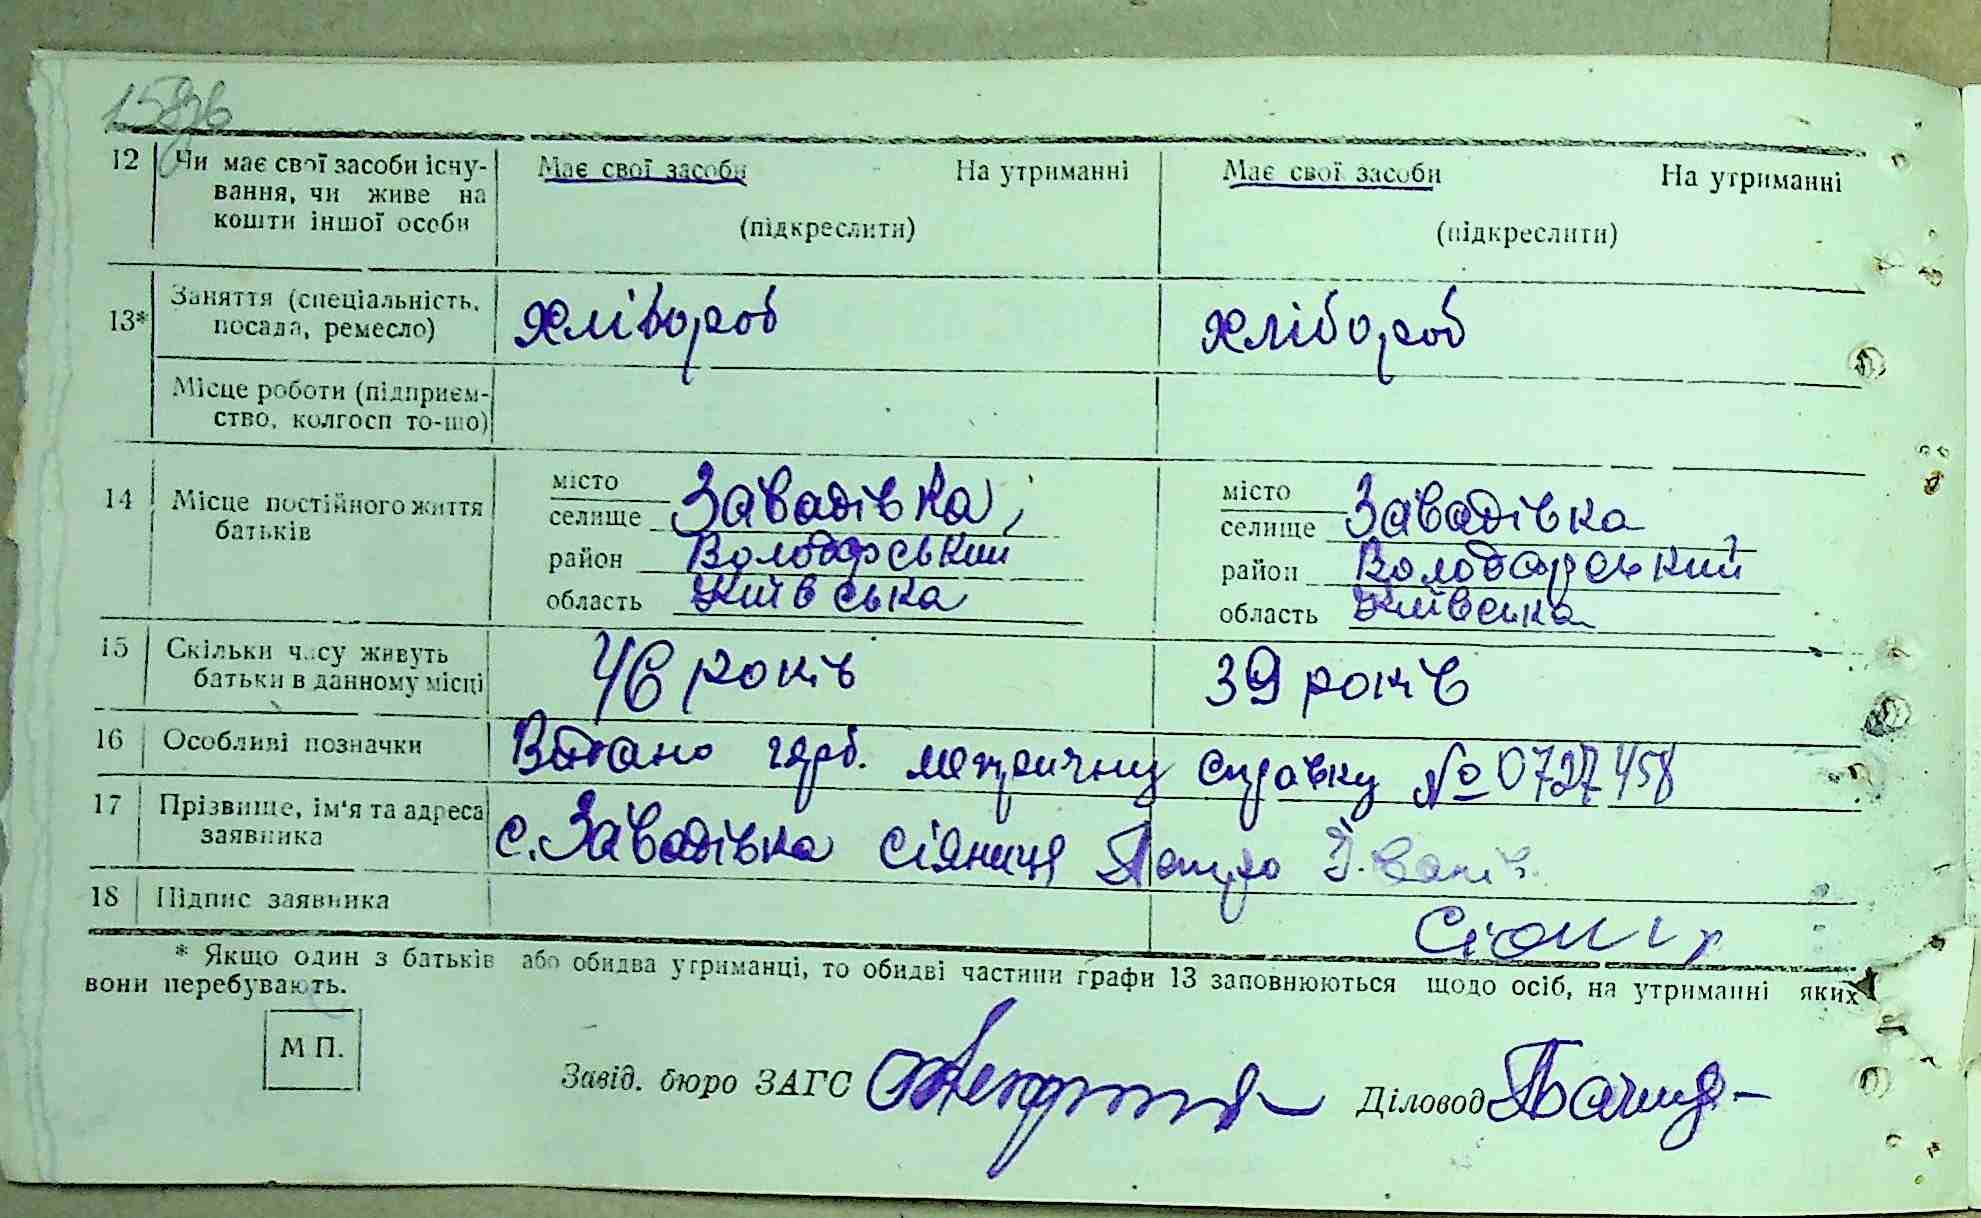 12 Чи має свої засоби існу- Має свої засоби На утриманні Має свої засоби На утриманні
вання, чи живе на
кошти іншої особи (підкреслити) (підкреслити)
13* Заняття (спеціальність, хлібороб хлібороб
посада, ремесло)
Місце роботи (підприєм-
ство, колгосп то-що)
14 Місце постійного життя місто місто
батьків селище Завадівка селище Завадівка
район Володарський район Володарський
область Київська область Київська
15 Скільки часу живуть 46 років 39 років
батьки в данному місці
16 Особливі позначки Видано герб. метричну справку № 0727458
17 Прізвище, ім'я та адреса с. Завадівка Сіяниця
заявника
18 Підпис заявника
* Якщо один з батьків або обидва утриманці, то обидві частини графи 13 заповнюються щодо осіб, на утриманні яких
вони перебувають.
М П.
Завід. бюро ЗАГС Діловод